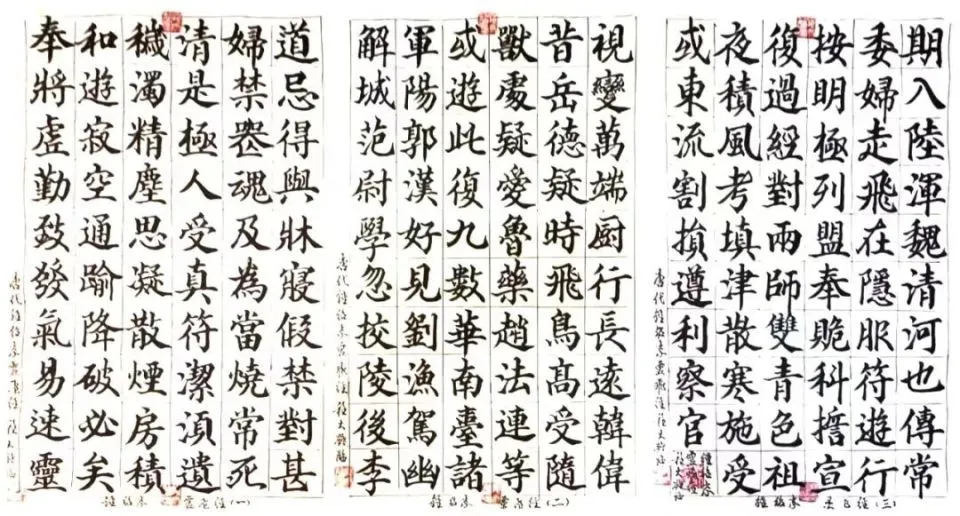 道忌得與牀寢假禁對甚
婦禁器魂及為當燒常死
清是極人受真符潔須遺
穢濁精塵思凝散煙房積
和遊寂空通踰降破必矣
奉將虛勤致發氣易速靈
唐代鍾紹京靈飛經
靈飛經(一)
視變萬端厨行長遠韓偉
昔岳德疑時飛鳥高受隨
獸處疑愛魯藥趙法連等
或遊此復九數華南臺諸
軍陽郭漢好見劉漁駕幽
解城范尉學忽挍陵後李
唐代鍾紹京靈飛經
靈飛經(二)
期入陸渾魏清河也傳常
委婦走飛在隱服符遊行
按明極列盟奉跪科宣
復過經對兩師雙青色祖
夜積風考填津散寒施受
或東流割損遵利察官
唐代鍾紹京靈飛經
靈飛經(三)